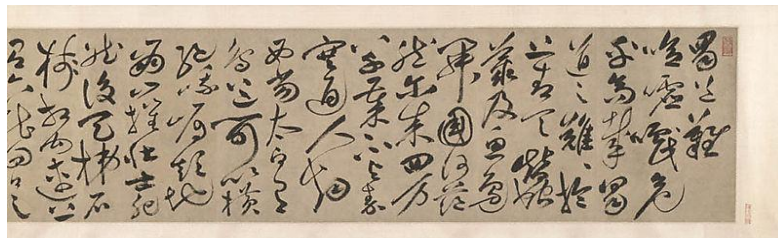 蜀道難
噫嘘嚱危
乎高哉蜀
道之難々於
上青天蠶
叢及魚鳧
開國何茫
然爾來四萬
八千歲不與秦
塞通人烟
西當太白有
鳥道可以橫
絕峨嵋巔地
崩山摧壯士死
然後天梯石
棧相鈎連上
有六龍回日之